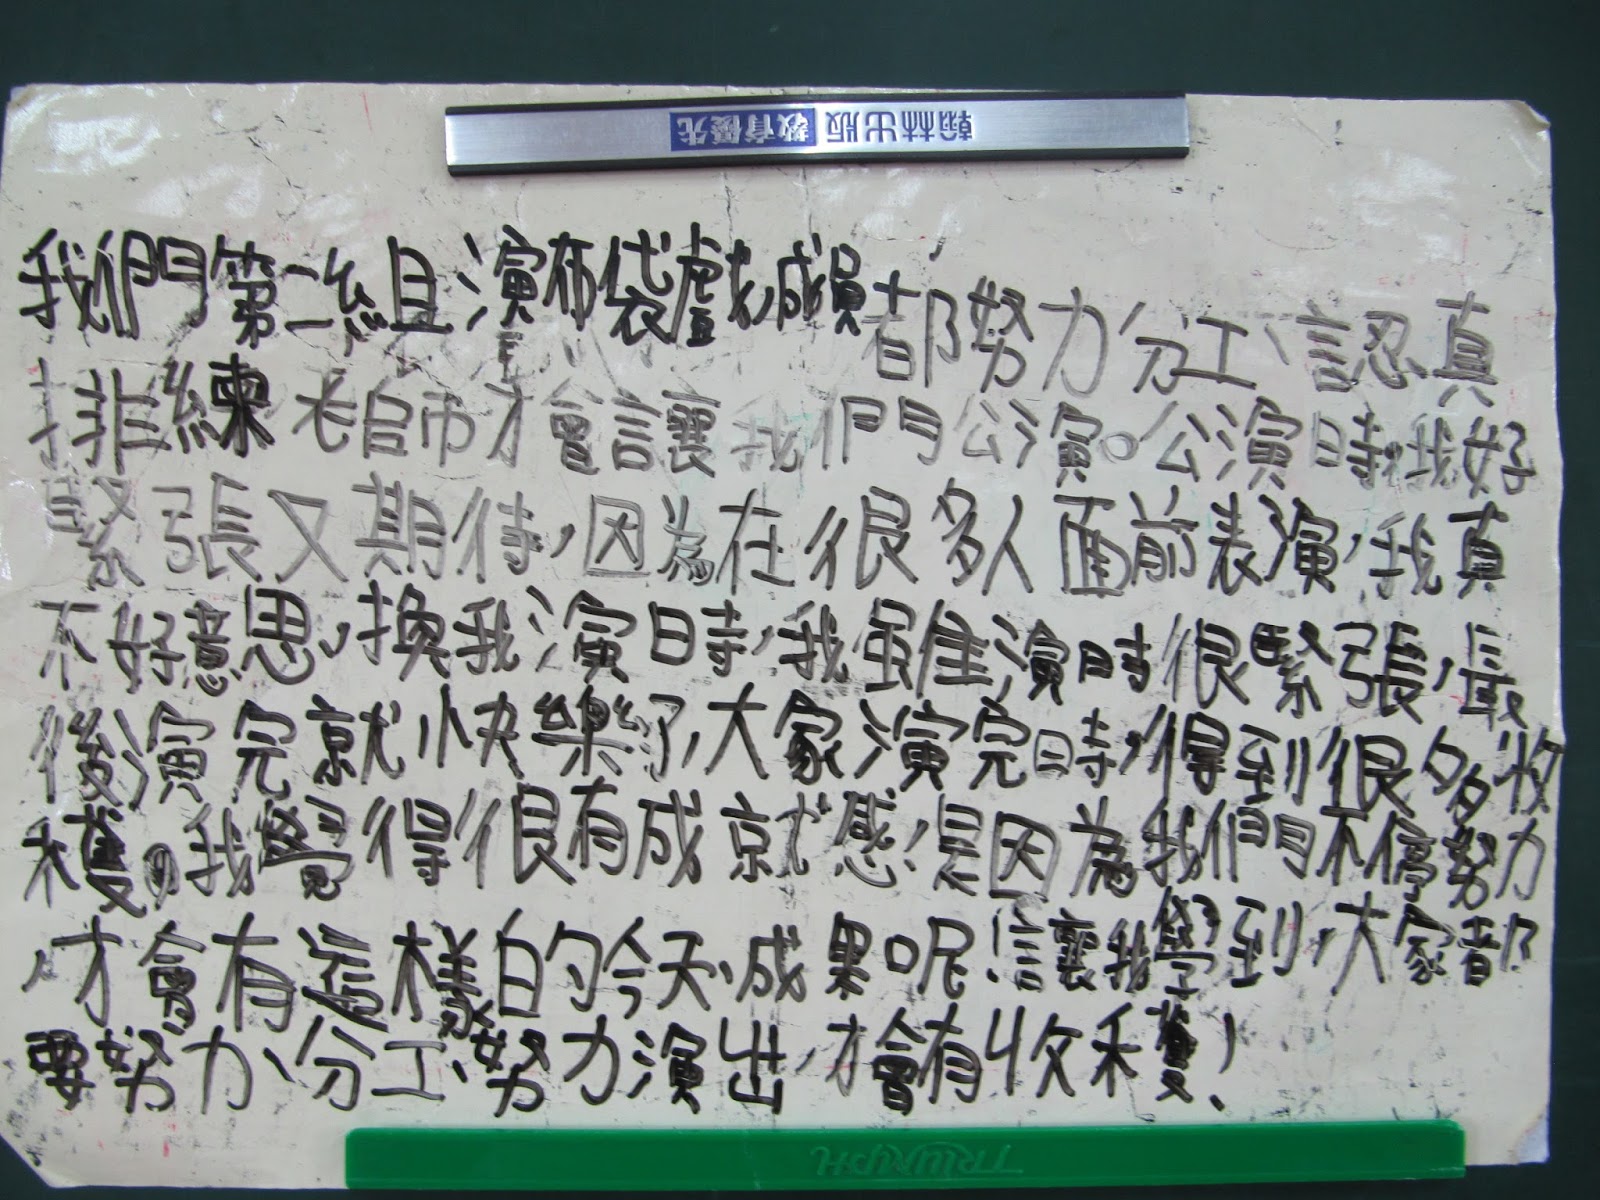 翰林出版 教育優先
我們第二組演布袋戲,成員都努力分工、認真
排練老師才會讓我們公演。公演時,我好
緊張又期待,因為在很多人面前表演,我真
不好意思,換我演時,我雖演時很緊張,最
後演完就快樂了,大家演完時,得到很多收
穫。我覺得很有成就感,是因為我們不停努力
,才會有這樣的今天、成果呢!讓我學到,大家都
要努力、分工、努力演出,才會有收穫!
TRIUMPH